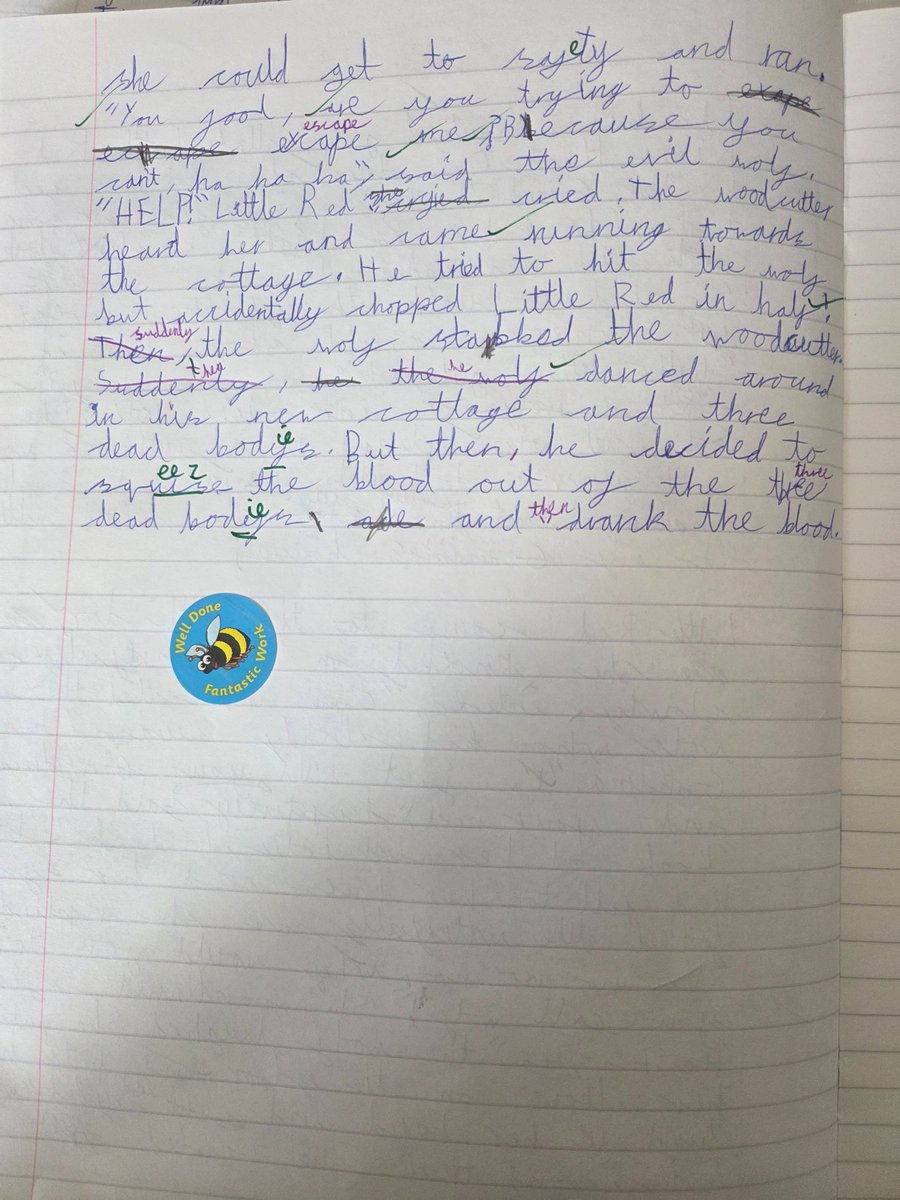 she could get to safety and ran.
"You fool, are you trying to exape
ecape escape
excape me? Because you
can't, ha ha ha", said the evil wolf.
"HELP!" Little Red she cryied cried. The woodcutter
heard her and came running towards
the cottage. He tried to hit the wolf
but accidentally chopped Little Red in half.
suddenly
Then, the wolf stabbed the woodcutter.
then he
Suddenly, he the wolf danced around
in his new cottage and three
dead bodys. But then, he decided to
ie
ee z three
squise the blood out of the three
ie then
dead bodys and drank the blood.
Well Done
Fantastic Work